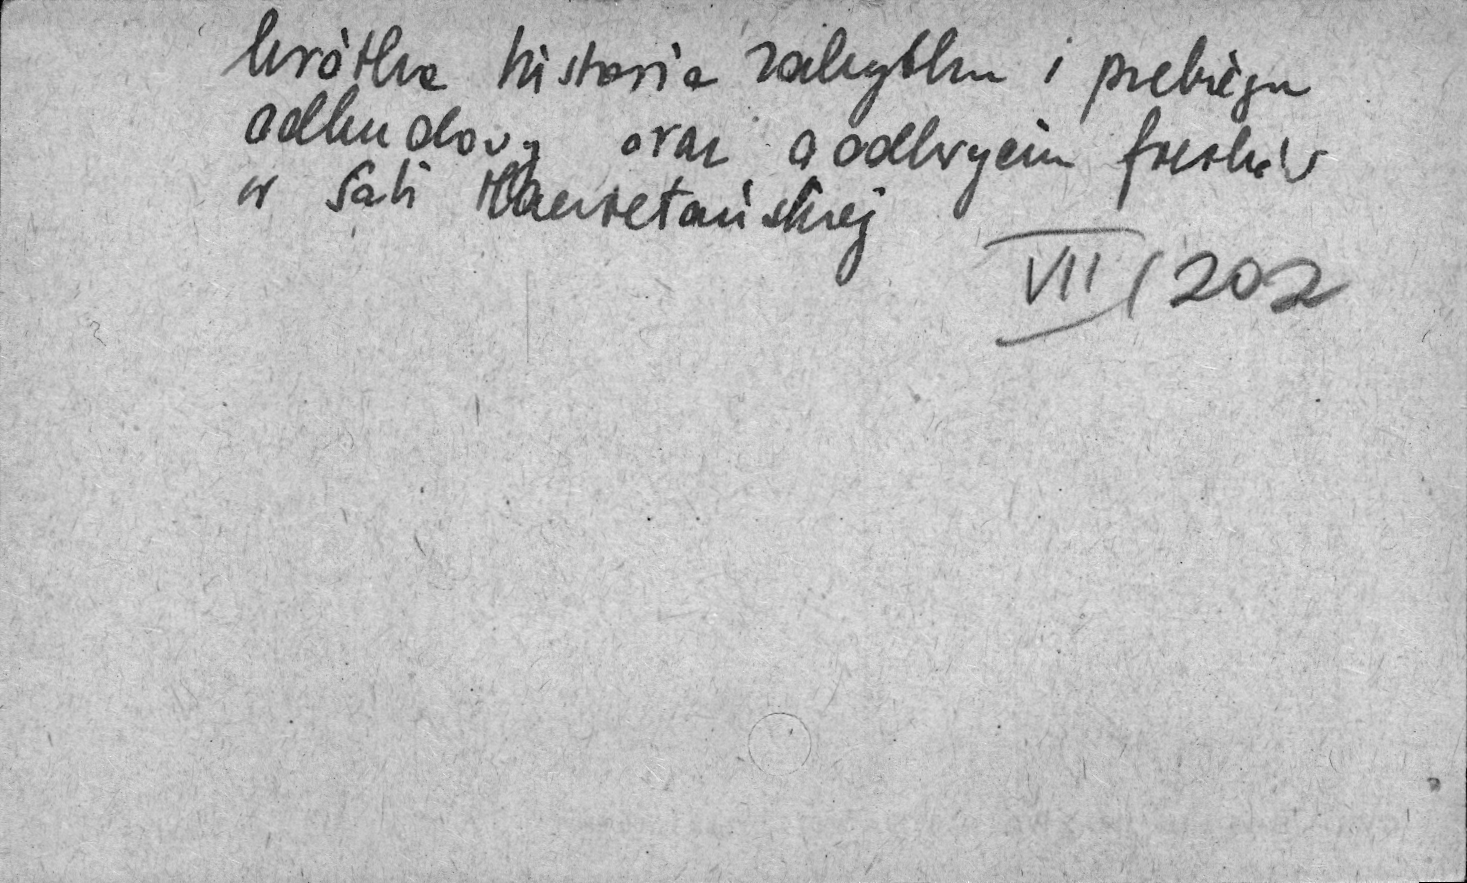 krótka historia zabytku i przebiegu
odbudowy oraz o odkryciu fresków
w Sali
VII/202